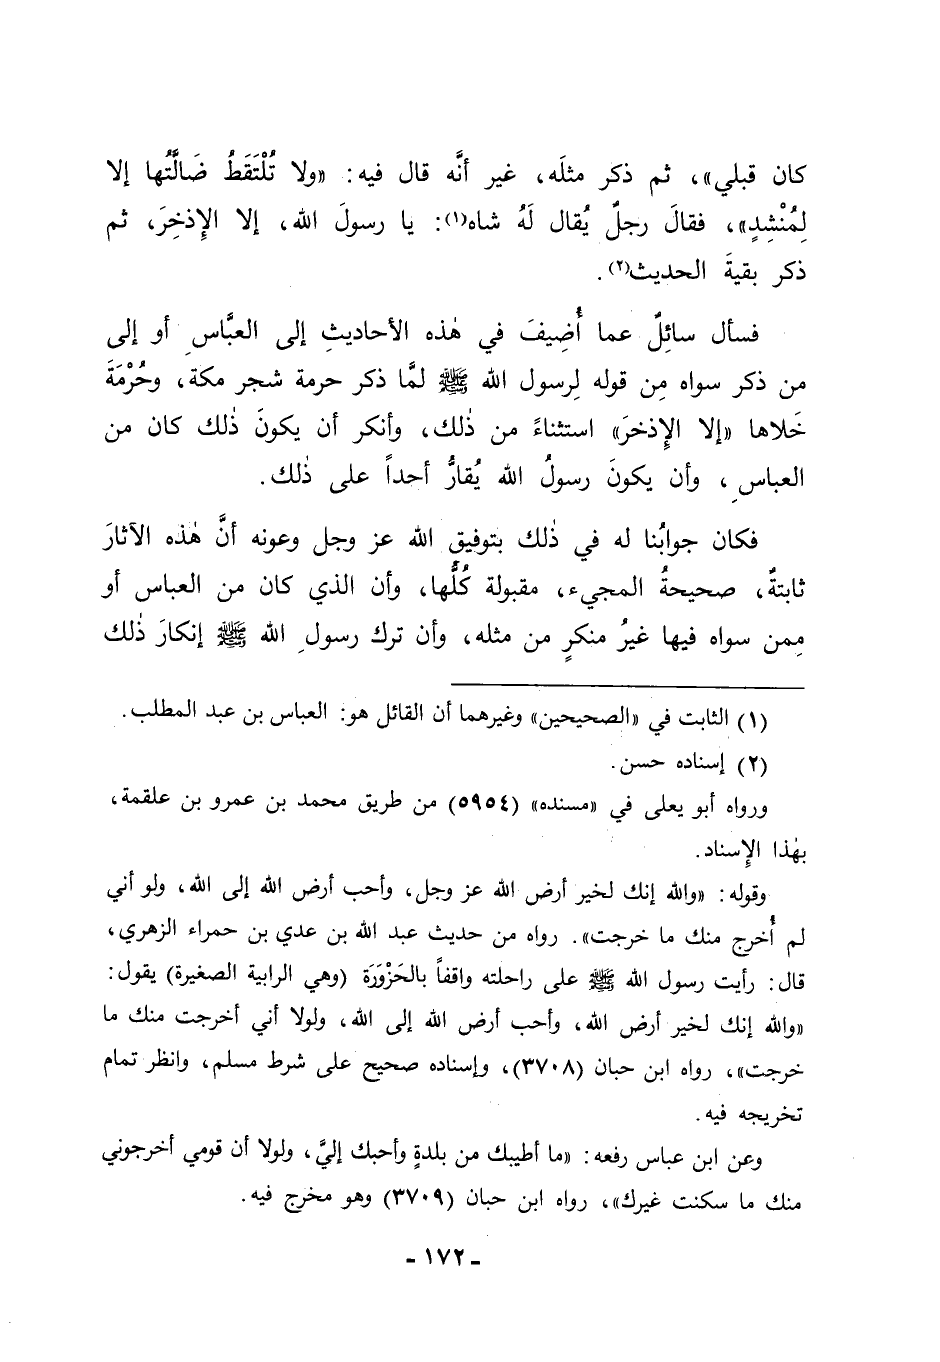 كان قبلي»، ثم ذكر مثلَه، غير أنَّه قال فيه: «ولا تُلْتَقَطُ ضَالَّتُها إلا
لِمُنْشِدٍ»، فقالَ رجلٌ يُقال لَهُ شاه(١): يا رسولَ الله، إلا الإِذخِرَ، ثم
ذكر بقيةَ الحديث(٢).
فسأل سائِلٌ عما أُضِيفَ في هٰذه الأحاديثِ إلى العبَّاسِ أو إلى
من ذكر سواه مِن قوله لِرسول الله ﷺ لمَّا ذكر حرمة شجر مكة، وحُرْمَةَ
خَلاها «إلا الإِذخرَ» استثناءً من ذٰلك، وأنكر أن يكونَ ذٰلك كان من
العباسِ، وأن يكونَ رسولُ الله يُقارُّ أحداً على ذٰلك.
فكان جوابُنا له في ذٰلك بتوفيقِ الله عز وجل وعونه أنَّ هٰذه الآثارَ
ثابتةٌ، صحيحةُ المجيء، مقبولة كُلُّها، وأن الذي كان من العباس أو
مِمن سواه فيها غيرُ منكرٍ من مثله، وأن ترك رسولِ الله ﷺ إنكارَ ذٰلك
(١) الثابت في «الصحيحين» وغيرهما أن القائل هو: العباس بن عبد المطلب.
(٢) إسناده حسن.
ورواه أبو يعلى في «مسنده» (٥٩٥٤) من طريق محمد بن عمرو بن علقمة،
بهٰذا الإِسناد.
وقوله: «والله إنك لخير أرض الله عز وجل، وأحب أرض الله إلى الله، ولو أني
لم أُخرج منك ما خرجت». رواه من حديث عبد الله بن عدي بن حمراء الزهري،
قال: رأيت رسول الله ﷺ على راحلته واقفاً بالحَزْوَرَة (وهي الرابية الصغيرة) يقول:
«والله إنك لخير أرض الله، وأحب أرض الله إلى الله، ولولا أني أخرجت منك ما
خرجت»، رواه ابن حبان (٣٧٠٨)، وإسناده صحيح على شرط مسلم، وانظر تمام
تخريجه فيه.
وعن ابن عباس رفعه: «ما أطيبك من بلدةٍ وأحبك إليَّ، ولولا أن قومي أخرجوني
منك ما سكنت غيرك»، رواه ابن حبان (٣٧٠٩) وهو مخرج فيه.
- ١٧٢ -